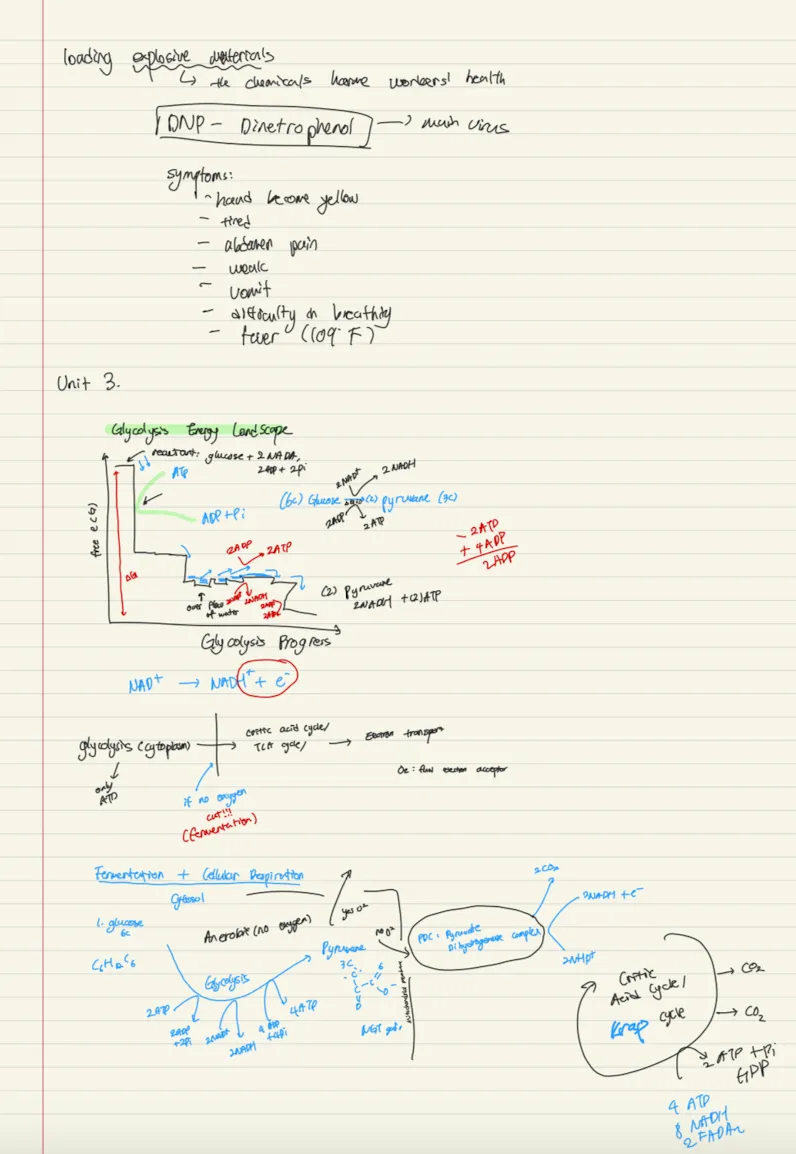 loading explosive materials
↳ the chemicals harme workers' health
DNP - Dinetrophenol → main virus
symptoms:
- hand become yellow
- tired
- abdomen pain
- weak
- vomit
- difficulty in breathing
- fever (109° F)
Unit 3.
Glycolysis Energy Landscape
reactant: glucose + 2 NAD+,
2ADP + 2Pi
ATP
ADP + Pi
free E (G)
ΔG
2NAD+ 2NADH
(6C) Glucose (2) pyruvane (3C)
2ADP 2ATP
- 2ATP
+ 4ADP
2ADP
2ADP → 2ATP
over
of water
2NADH
(2) Pyruvane
2NADH + (2)ATP
Glycolysis Progress
NAD+ → NADH+ + e-
glycolysis (cytoplasm) → Critic acid cycle/
TCA cycle/ → Electron transport
only
ATP
O2 : final electron acceptor
if no oxygen
cut!!!
(fermentation)
Fermentation + Cellular Respiration
Cytosol
1. glucose
6C
C6H12C6
Anerobic (no oxygen)
yes O2
no O2
Glycolysis
Pyruvane
3C
2ATP
2ADP
+ 2Pi
2NAD+
2NADH
4 ADP
+ 4Pi
4ATP
NET gain,
PDC : Pyruvate
Dihydrogenase complex
2CO2
2NADH + e-
2NAD+
Critic
Acid Cycle/
Krap cycle
CO2
CO2
2 ATP + Pi
GDP
4 ATP
8 NADH
2 FADH2